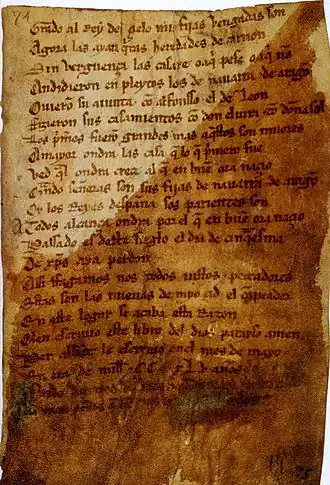 74
Grado al Rey del çielo mis fijas vengadas son
Agora las ayan q̃tas heredades de carrion
Sin verguença las casare o aq̃ pese o aq̃ nõ
Andidieron en pleytos los de nauarra ⁊ de aragõ
Ouierõ su aiunta cõ alfonsso el de leon
Fizieron sus casamientos cõ don eluira ⁊ cõ doña sol
Los p̃meros fuerõ grandes mas aq̃stos son miiores
A mayor ondra las casa q̃ lo q̃ p̃mero fue
Ved q̃l ondra creçe al q̃ en buẽ ora naçio
Quãdo señoras son sus fijas de nauarra ⁊ de aragõ
Oy los Reyes despaña sos parientes son
A todos alcança ondra por el q̃ en buẽ ora naçio
Passado es deste sieglo el dia de cinq̃esma
De xp̃s aya perdon
Assi ffagamos nos todos iustos ⁊ peccadores
Estas son las nueuas de myo çid el canpeador
En este logar se acaba esta Razon
Quien escriuio este libro del dios parayso amen
Per abbat le escriuio en el mes de mayo
En era de mill ⁊ CC xLv años